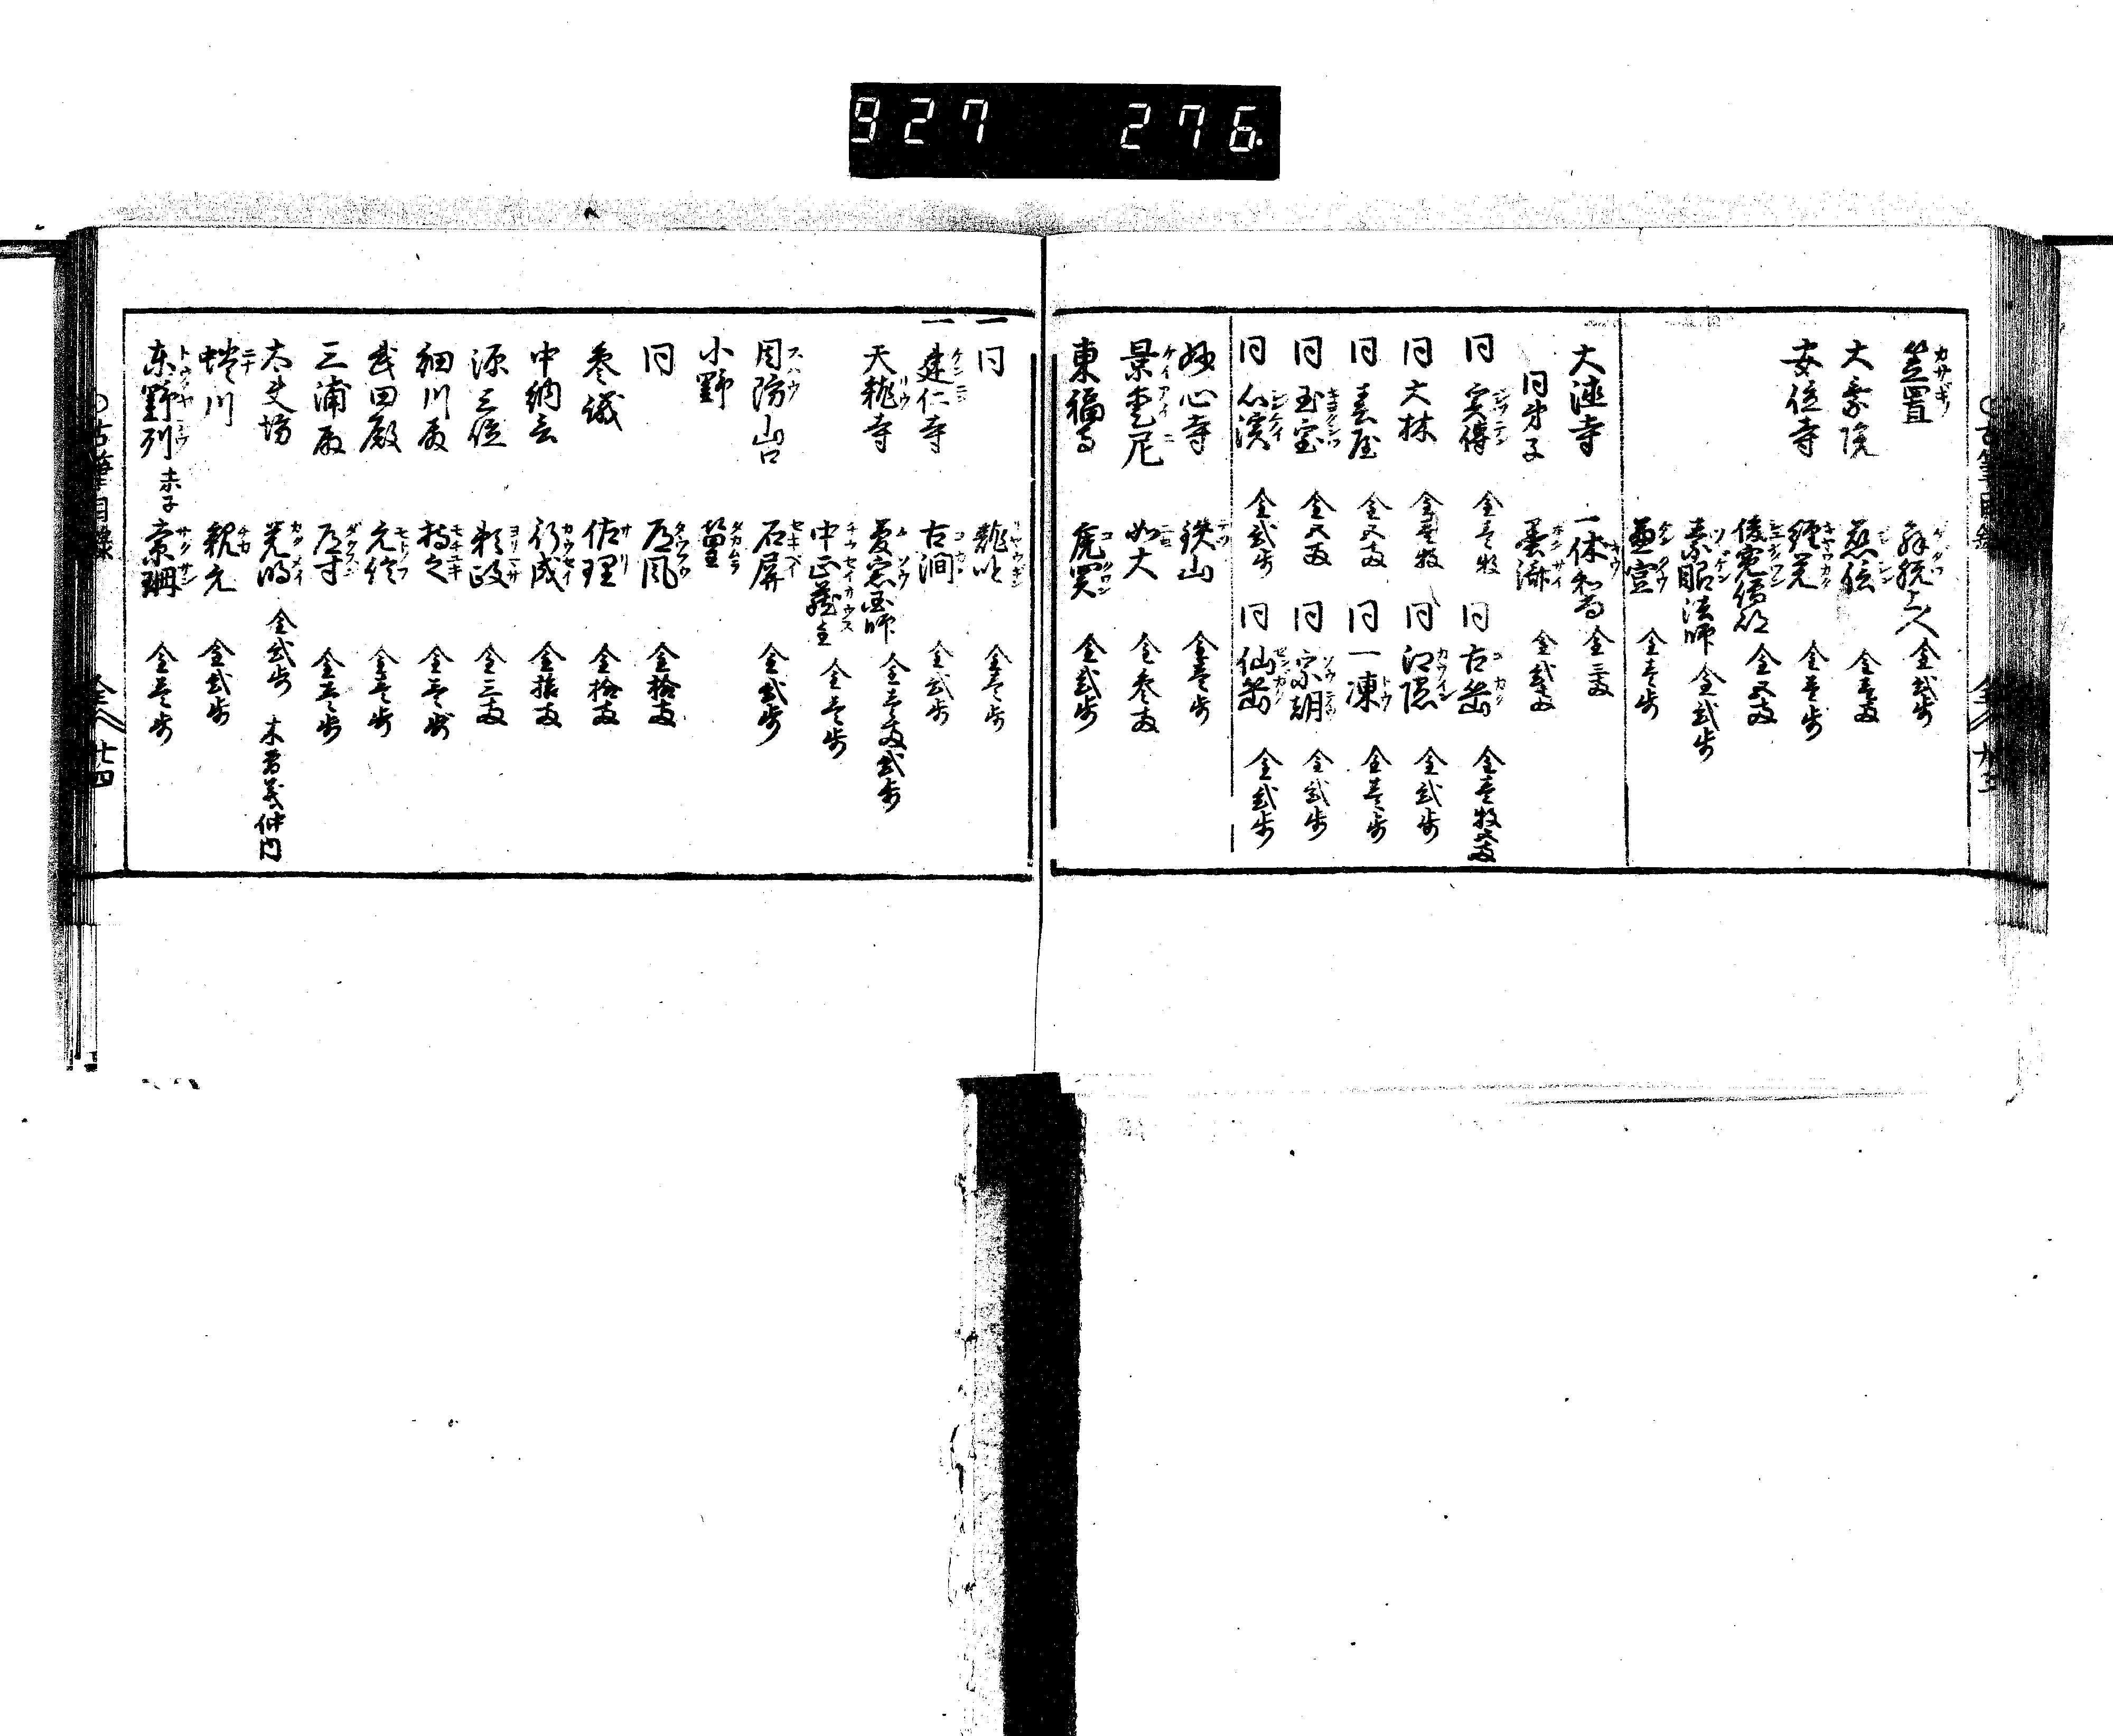 927 276.
笠置 解脱上人 金弐歩
大乗院 慈信 金壱両
安位寺 経覚 金壱歩
俊寛僧都 金五両
素昭法師 金弐歩
兼空 金壱歩
大徳寺 一休和尚 金三両
同弟子 墨済 金弐両
同 実傳 金壱枚 同 古岳 金壱枚五両
同 大林 金壱枚 同 江隠 金弐歩
同 春屋 金五両 同 一凍 金壱歩
同 玉室 金五両 同 宗玥 金弐歩
同 心溪 金弐歩 同 仙岳 金弐歩
妙心寺 鉄山 金壱歩
景愛尼 如大 金参両
東福寺 虎関 金弐歩
一同 龍吟 金壱歩
一建仁寺 古澗 金弐歩
天龍寺 夢窓国師 金壱両弐歩
中正蔵主 金壱歩
周防山口 石屏 金弐歩
小野 篁
同 道風 金拾両
参議 佐理 金拾両
中納言 行成 金拾両
源三位 頼政 金三両
細川殿 持之 金壱歩
武田殿 元信 金壱歩
三浦殿 道寸 金壱歩
太夫坊 覚明 金弐歩 木曽義仲内
蜷川 親元 金弐歩
東野列 素子 素珊 金壱歩
古筆目録 全 廿四